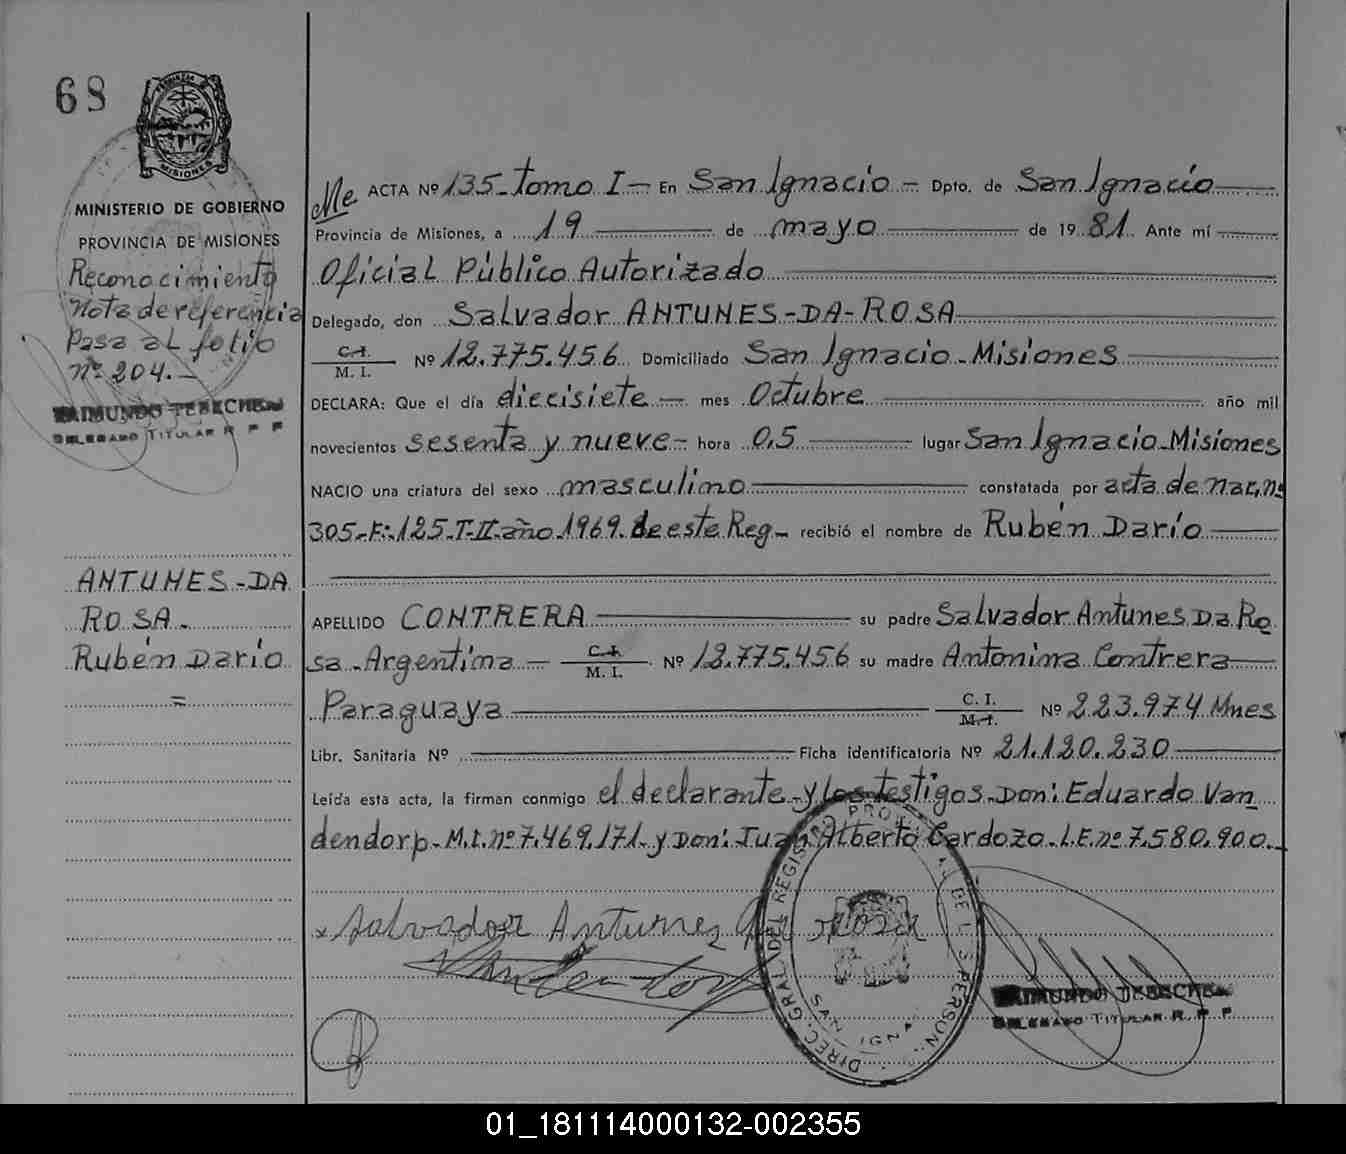 68
MISIONES
MINISTERIO DE GOBIERNO
PROVINCIA DE MISIONES
Reconocimiento
Nota de referencia
Pasa al folio
nº 204.-
RAIMUNDO
DELEGADO TITULAR R P P
ANTUNES-DA
ROSA.
Rubén Darío
=
Me ACTA Nº 135-tomo I- En San Ignacio - Dpto. de San Ignacio
Provincia de Misiones, a 19 de mayo de 1981 Ante mí
Oficial Público Autorizado
Delegado, don Salvador ANTUNES-DA-ROSA
C.I.
M. I. Nº 12.775.456 Domiciliado San Ignacio-Misiones
DECLARA: Que el día diecisiete - mes Octubre año mil
novecientos sesenta y nueve- hora 0,5 lugar San Ignacio-Misiones
NACIO una criatura del sexo masculino constatada por acta de nac, nº
305-F:125-T-II-año 1969. de este Reg- recibió el nombre de Rubén Darío
APELLIDO CONTRERA su padre Salvador Antunes Da Ro
sa-Argentina - C.I.
M. I. Nº 12.775.456 su madre Antonina Contrera
Paraguaya C. I.
M.I. Nº 223.974 Mnes
Libr. Sanitaria Nº Ficha identificatoria Nº 21.120.230
Leída esta acta, la firman conmigo el declarante y los testigos-Don: Eduardo Van
dendorp-M.I.nº7.469.171-y Don: Juan Alberto Cardozo-L.E.nº7.580.900.-
x Salvador Antunes da rosa
Vandendorp
DIREC. GRAL. DEL REGISTRO PROV. DE L S PERSON
SAN IGNA
RAIMUNDO
DELEGADO TITULAR R. P. P.
01_181114000132-002355